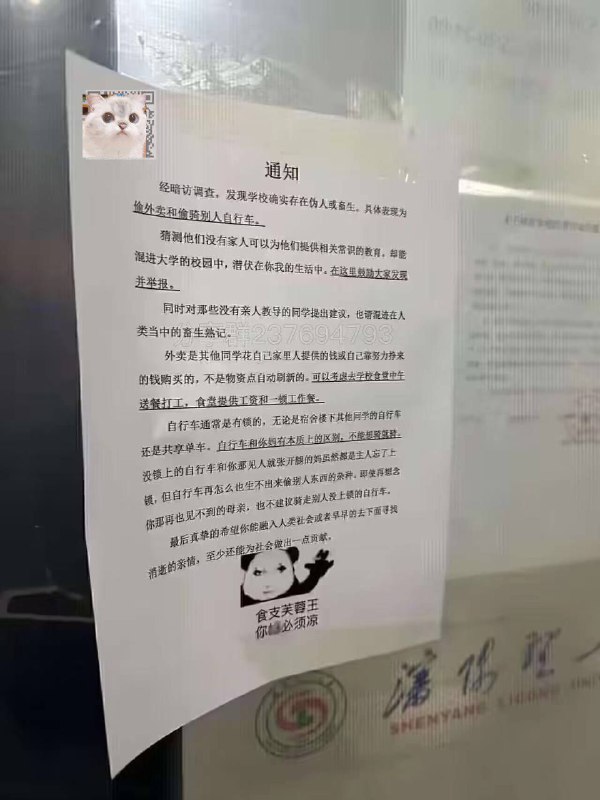 通知
经暗访调查，发现学校确实存在伪人或畜生。具体表现为
偷外卖和偷骑别人自行车。
猜测他们没有家人可以为他们提供相关常识的教育。却能
混进大学的校园中，潜伏在你我的生活中。在这里鼓励大家发现
并举报。
同时对那些没有亲人教导的同学提出建议，也请混迹在人
类当中的畜生熟记。
群237694793
外卖是其他同学花自己家里人提供的钱或自己靠努力挣来
的钱购买的，不是物资点自动刷新的。可以考虑去学校食堂中午
送餐打工，食堂提供工资和一顿工作餐。
自行车通常是有锁的，无论是宿舍楼下其他同学的自行车
还是共享单车。自行车和你妈有本质上的区别，不能想骑就骑。
没锁上的自行车和你那见人就张开腿的妈虽然都是主人忘了上
锁，但自行车再怎么也生不出来偷别人东西的杂种。即使再想念
你那再也见不到的母亲，也不建议骑走别人没上锁的自行车。
最后真挚的希望你能融入人类社会或者早早的去下面寻找
消逝的亲情，至少还能为社会做出一点贡献。
食支芙蓉王
你 必须凉
SHENYANG LIGONG UNI